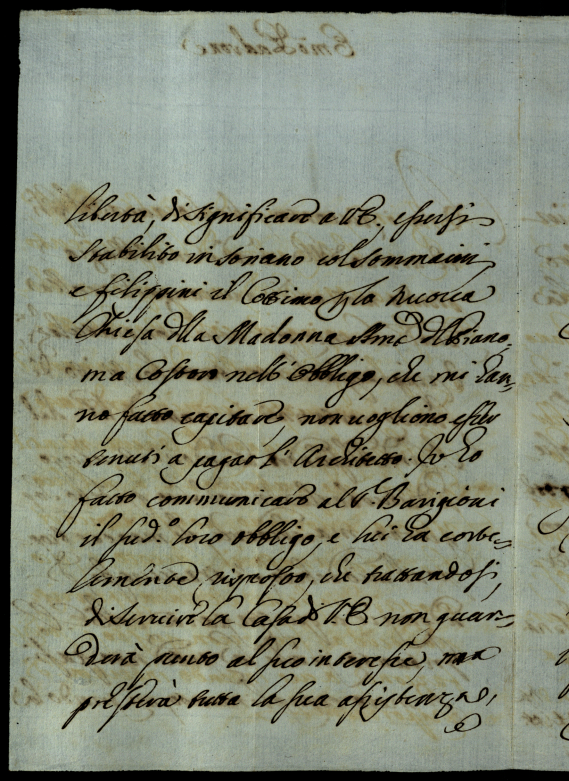 libertà, di significare a V.E., essersi
stabilito in Soriano col Sommaini,
e Filippini il Cottimo p la nuova
Chiesa dlla Madonna SSma dl Piano,
ma Costoro nell'obbligo, che mi han-
no fatto capitare, non vogliono esser
tenuti a pagar l'Architetto. Io ho
fatto communicare al Sr. Barigioni
il sud.o loro obbligo, e lui ha corte-
semente risposto, che trattandosi,
di servire la Casa di V.E. non guar-
derà punto al suo interesse, ma
presterà tutta la sua assistenza,
e